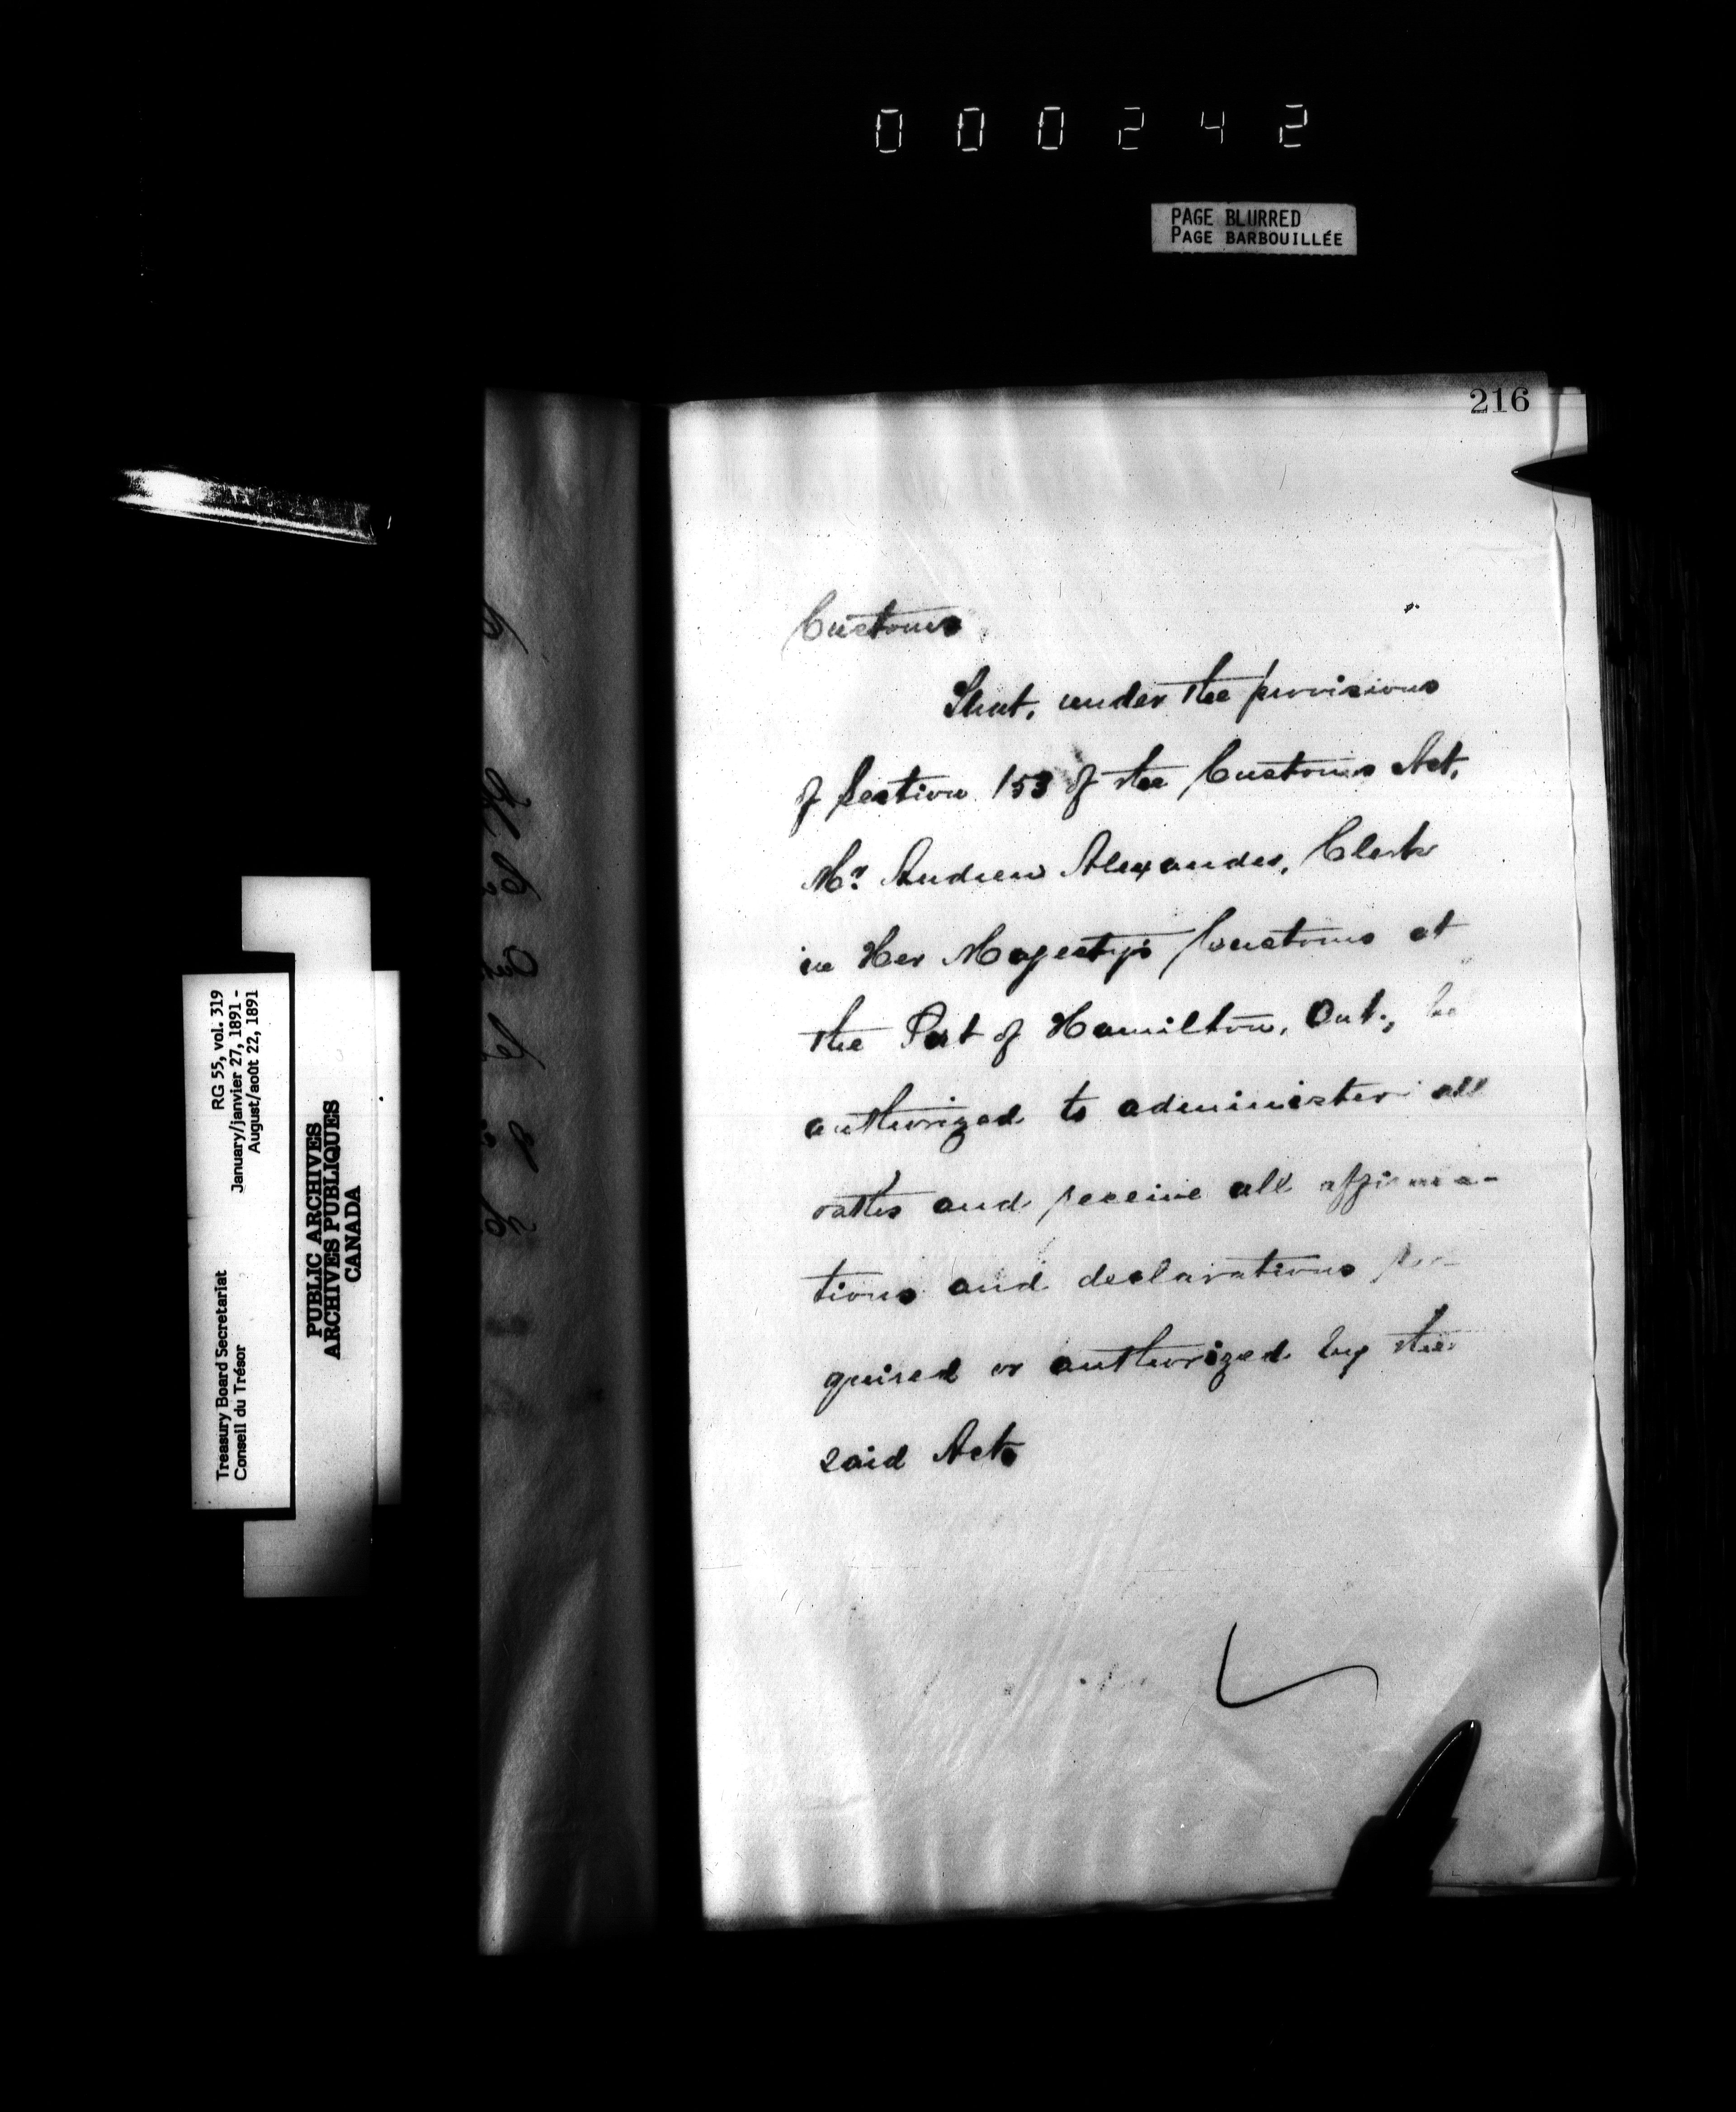 000242
PAGE BLURRED
PAGE BARBOUILLÉE
216
Customs
That, under the provisions
of Section 153 of the Customs Act,
Mr. Andrew Alexander, Clerk
in Her Majesty's Customs at
the Port of Hamilton, Ont., be
authorized to administer all
oaths and receive all affirma-
tions and declarations re-
quired or authorized by the
said Act.
RG 55, vol. 319
January/janvier 27, 1891 -
August/août 22, 1891
Treasury Board Secretariat
Conseil du Trésor
PUBLIC ARCHIVES
ARCHIVES PUBLIQUES
CANADA